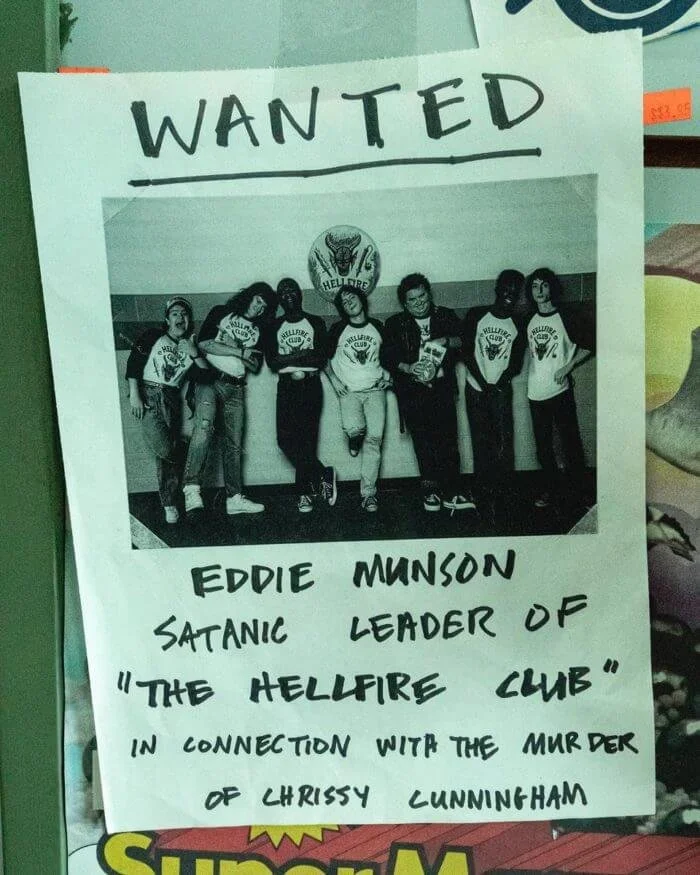 WANTED
HELLFIRE
HELLFIRE
CLUB
HELLFIRE
CLUB
HELLFIRE
CLUB
HELLFIRE
CLUB
HELLFIRE
CLUB
EDDIE MUNSON
SATANIC LEADER OF
"THE HELLFIRE CLUB"
IN CONNECTION WITH THE MURDER
OF CHRISSY CUNNINGHAM